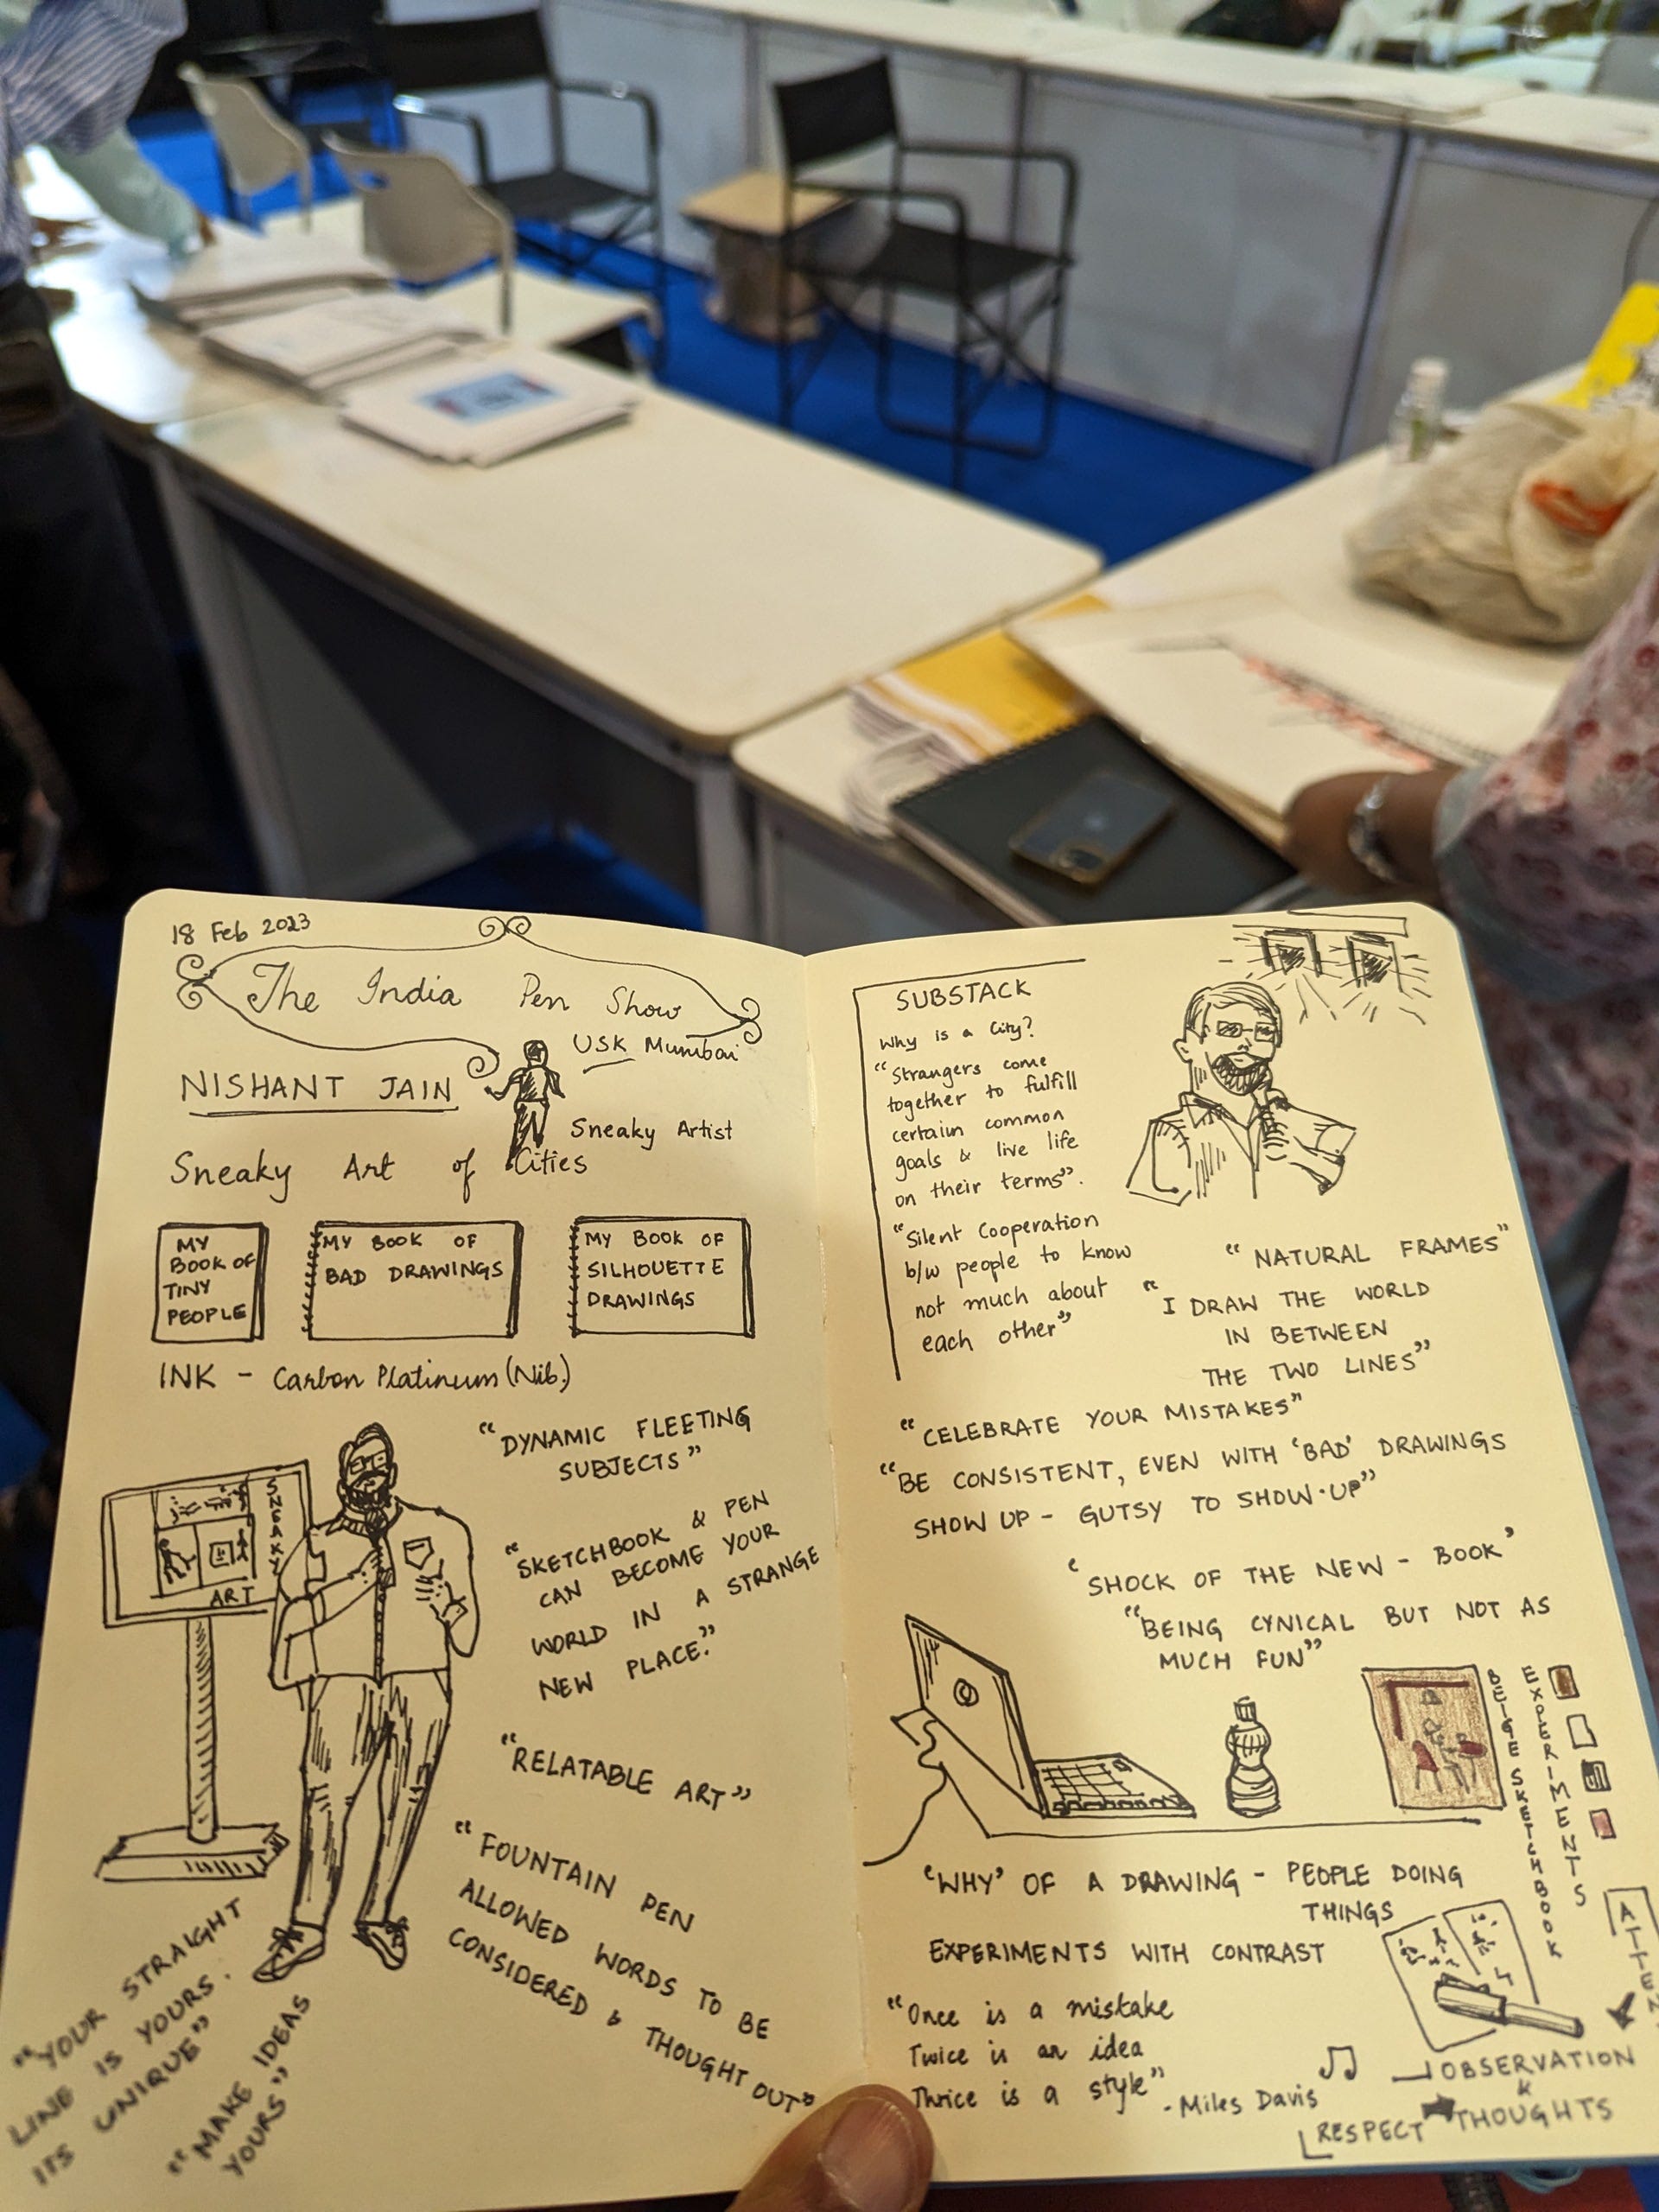 18 Feb 2023
The India Pen Show
USK Mumbai
NISHANT JAIN
Sneaky Artist
Sneaky Art of Cities
MY
BOOK OF
TINY
PEOPLE
MY BOOK OF
BAD DRAWINGS
MY BOOK OF
SILHOUETTE
DRAWINGS
INK - Carbon Platinum (Nib.)
"DYNAMIC FLEETING
SUBJECTS"
SNEAKY
ART
"SKETCHBOOK & PEN
CAN BECOME YOUR
WORLD IN A STRANGE
NEW PLACE."
"RELATABLE ART"
"FOUNTAIN PEN
ALLOWED WORDS TO BE
CONSIDERED & THOUGHT OUT"
"YOUR STRAIGHT
LINE IS YOURS.
ITS UNIQUE"
"MAKE IDEAS
YOURS"
SUBSTACK
Why is a City?
"Strangers come
together to fulfill
certain common
goals & live life
on their terms".
"Silent Cooperation
b/w people to know
not much about
each other"
"NATURAL FRAMES"
"I DRAW THE WORLD
IN BETWEEN
THE TWO LINES"
"CELEBRATE YOUR MISTAKES"
"BE CONSISTENT, EVEN WITH 'BAD' DRAWINGS
SHOW UP - GUTSY TO SHOW-UP"
'SHOCK OF THE NEW - BOOK'
"BEING CYNICAL BUT NOT AS
MUCH FUN"
BEIGE SKETCHBOOK
EXPERIMENTS
'WHY' OF A DRAWING - PEOPLE DOING
THINGS
EXPERIMENTS WITH CONTRAST
"Once is a mistake
Twice is an idea
Thrice is a style"
- Miles Davis
OBSERVATION
&
THOUGHTS
RESPECT